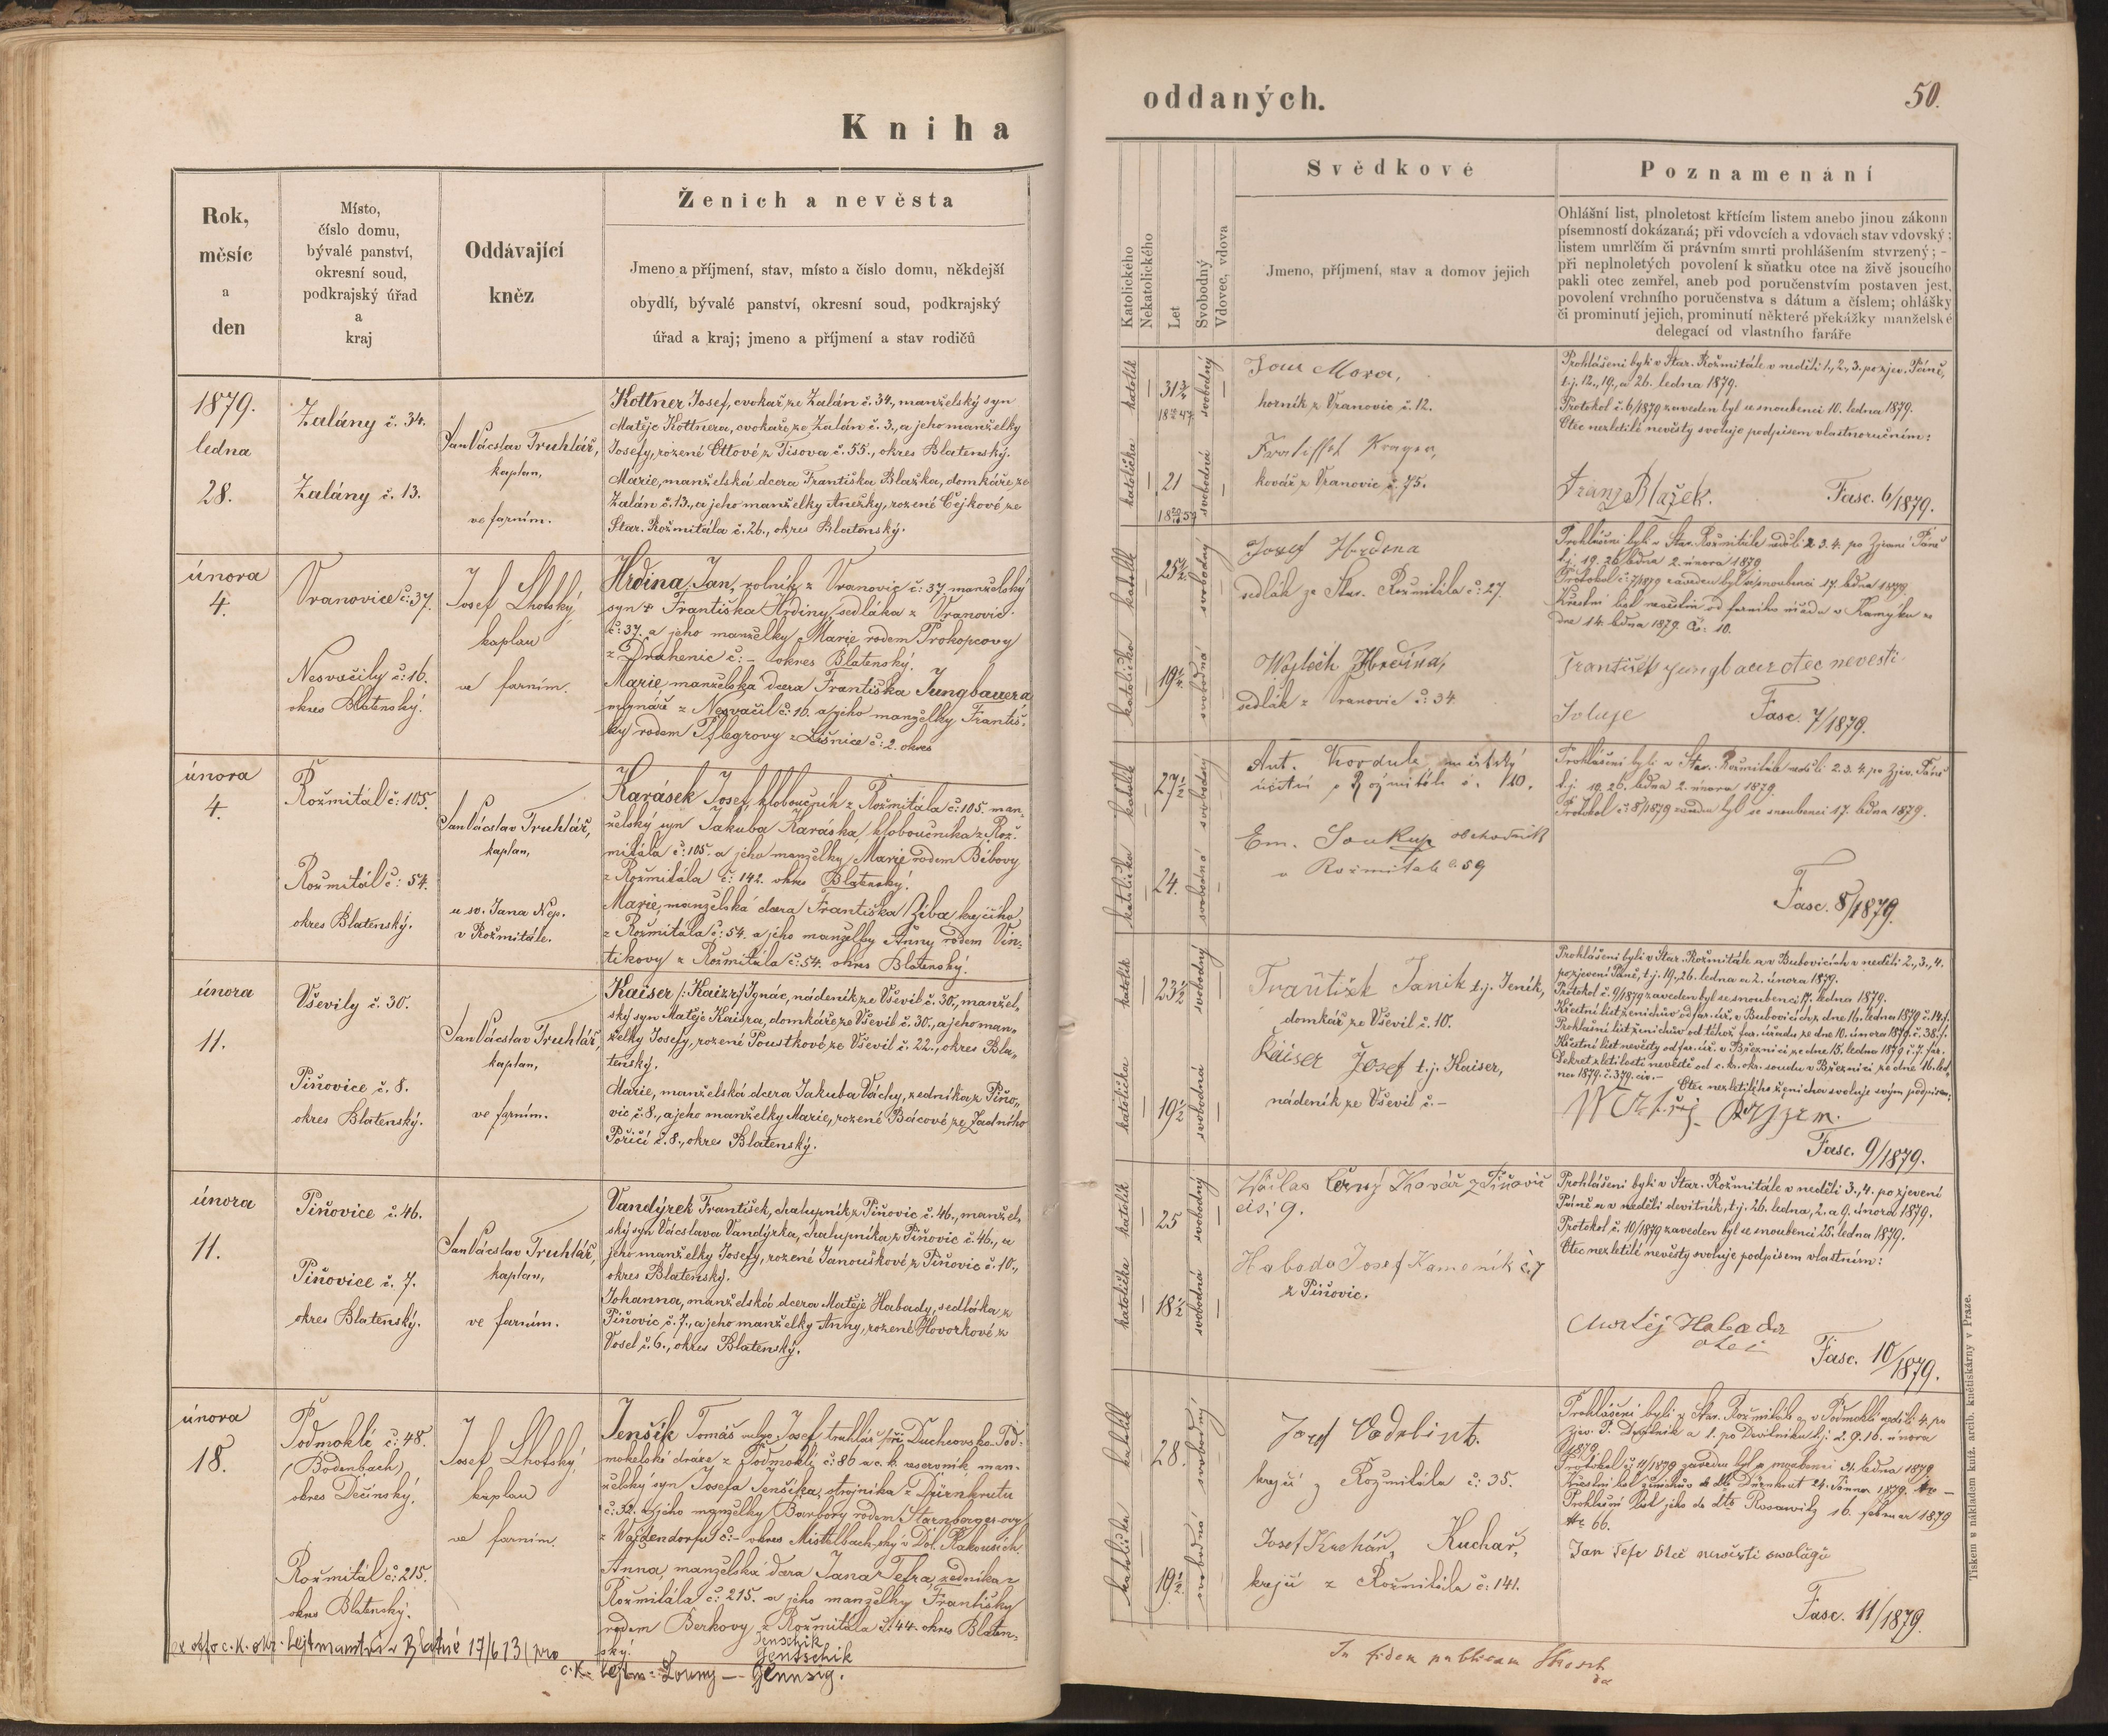 Kniha
Rok,
měsíc
a
den
Místo,
číslo domu,
bývalé panství,
okresní soud,
podkrajský úřad
a
kraj
Oddávající
kněz
Ženich a nevěsta
Jmeno a příjmení, stav, místo a číslo domu, někdejší
obydlí, bývalé panství, okresní soud, podkrajský
úřad a kraj; jmeno a příjmení a stav rodičů
1879.
ledna
28.
Zalány č. 34.
Zalány č. 13.
Jan Vácslav Truhlář,
kaplan,
ve farním.
Kottner Josef, cvokař ze Zalán č. 34., manželský syn
Matěje Kottnera, cvokaře ze Zalán č. 3., a jeho manželky
Josefy, rozené Ottové z Tisova č. 55., okres Blatenský.
Marie, manželská dcera Františka Blažka, domkáře ze
Zalán č. 13., a jeho manželky Anežky, rozené Čejkové ze
Star. Rožmitála č. 26., okres Blatenský.
února
4.
Vranovice č: 37.
Nesvačily č: 16.
okres Blatenský.
Josef Lhotský,
kaplan
ve farním.
Hrdina Jan, rolník z Vranovic č: 37. manželský
syn Františka Hrdiny, sedláka z Vranovic
č: 37. a jeho manželky Marie rodem Prokopcovy
z Drahenic č: – okres Blatenský.
Marie manželská dcera Františka Jungbauera
mlynáře z Nesvačil č: 16. a jeho manželky Františ-
ky rodem Pflegrovy z Líšnice č: 2. okres
února
4.
Rožmitál č: 105.
Rožmitál č: 54.
okres Blatenský.
Jan Vácslav Truhlář,
kaplan,
u sv. Jana Nep.
v Rožmitále.
Karásek Josef, kloboučník z Rožmitála č: 105. man-
želský syn Jakuba Karáska, kloboučníka z Rož-
mitála č: 105. a jeho manželky Marie rodem Bibovy
z Rožmitála č: 142. okres Blatenský.
Marie, manželská dcera Františka Ziba, krejčího
z Rožmitála č: 54. a jeho manželky Anny rodem Vin-
tikovy z Rožmitála č: 54. okres Blatenský.
února
11.
Vševily č. 30.
Piňovice č. 8.
okres Blatenský.
Jan Vácslav Truhlář,
kaplan,
ve farním.
Kaiser /: Kaizr :/ Ignác, nádeník ze Vševil č. 30., manžel-
ský syn Matěje Kaisra, domkáře ze Vševil č. 30., a jeho man-
želky Josefy, rozené Poustkové ze Vševil č. 22., okres Bla-
tenský.
Marie, manželská dcera Jakuba Váchy, zedníka z Piňo-
vic č. 8., a jeho manželky Marie, rozené Bácové ze Zadního
Poříčí č. 8., okres Blatenský.
února
11.
Piňovice č. 46.
Piňovice č. 7.
okres Blatenský.
Jan Vácslav Truhlář,
kaplan,
ve farním.
Vandýrek František, chalupník z Piňovic č. 46., manžel-
ský syn Vácslava Vandýrka, chalupníka z Piňovic č. 46., a
jeho manželky Josefy, rozené Janouškové z Piňovic č. 10.,
okres Blatenský.
Johanna, manželská dcera Matěje Habady, sedláka z
Piňovic č. 7., a jeho manželky Anny, rozené Hovorkové z
Vosel č. 6., okres Blatenský.
února
18.
Podmoklé č: 48.
(Bodenbach)
okres Děčínský.
Rožmitál č: 215.
okres Blatenský.
Josef Lhotský,
kaplan
ve farním.
Jenšík Tomáš Josef, truhlář při Duchcovsko-Pod-
mokelské dráze z Podmoklí č: 86 a c. k. reservník, man-
želský syn Josefa Jenšíka, strojníka z Dürnkrutu
č: 32. a jeho manželky Barbory rodem Starnberger-ovy
z č: – okres Mistelbach-ský v Dol. Rakousích.
Anna, manželská dcera Jana Tefra, zedníka z
Rožmitála č: 215. a jeho manželky Františky
rodem Berkovy z Rožmitála č: 44. okres Blaten-
ský.
Jenschik
Jentschik
ex offo c. k. okr. hejtmanství v Blatné 17/6 13 pro
c. k. hejtm. Louny –
oddaných.
50.
Katolického
Nekatolického
Let
Svobodný
Vdovec, vdova
Svědkové
Jmeno, příjmení, stav a domov jejich
Poznamenání
Ohlášní list, plnoletost křtícím listem anebo jinou zákonn
písemností dokázaná; při vdovcích a vdovách stav vdovský;
listem umrlčím či právním smrti prohlášením stvrzený; -
při neplnoletých povolení k sňatku otce na živě jsoucího
pakli otec zemřel, aneb pod poručenstvím postaven jest,
povolení vrchního poručenstva s dátum a číslem; ohlášky
či prominutí jejich, prominutí některé překážky manželské
delegací od vlastního faráře
katolík
svobodný
katolička
21
svobodná
Jan Mora,
horník z Vranovic č. 12.
kovář z Vranovic č. 75.
Prohlášeni byli v Star. Rožmitále v neděli 1., 2., 3. po zjev. Páně,
t. j. 12., 19., a 26. ledna 1879.
Protokol č. 6/1879 zaveden byl se snoubenci 10. ledna 1879.
Otec nezletilé nevěsty svoluje podpisem vlastnoručním:
Franz Blažek.
Fasc. 6/1879.
katolík
svobodný
katolička
19
svobodná
Josef Hrdina
sedlák ze Star. Rožmitála č: 27.
Wojtěch Hrdina,
sedlák z Vranovic č: 34.
Prohlášeni byli v Star. Rožmitále neděli 2. 3. 4. po Zjevení Páně
t. j. 19. 26. ledna 2. února 1879
Protokol č: 7/1879 zaveden byl se snoubenci 17. ledna 1879.
Křestní list nevěstin od farního úřadu v Kamýku
dne 14. ledna 1879. Čí: 10.
František Jungbauer otec nevesti
svoluje
Fasc. 7/1879.
katolík
27½
svobodný
katolička
24.
svobodná
Ant. Kordule, městský
účetní z Rožmitálu č. 110.
Em. Soukup obchodník
v Rožmitále č. 59
Prohlášeni byli v Star. Rožmitále neděli 2. 3. 4. po Zjev. Páně
t. j. 19. 26. ledna 2. února 1879.
Protokol č: 8/1879 zaveden byl se snoubenci 17. ledna 1879.
Fasc. 8/1879.
katolík
23½
svobodný
katolička
19½
svobodná
František Janik t. j. Jeník,
domkář ze Vševil č. 10.
Kaiser Josef t. j. Kaiser,
nádeník ze Vševil č. –
Prohlášeni byli v Star. Rožmitále a v Bubovicích v neděli 2., 3., 4.
po zjevení Páně, t. j. 19., 26. ledna a 2. února 1879.
Protokol č. 9/1879 zaveden byl se snoubenci 17. ledna 1879.
Křestní list ženichův od far. úř. v Bubovicích z dne 16. ledna 1879 č. 14. f.
Prohlašní list ženichův od téhož far. úřadu ze dne 10. února 1879. č. 38. f.
Křestní list nevěsty od far. úř. v Březnici ze dne 15. ledna 1879 č. 7. far.
Dekret zletilosti nevěstě od c. k. okr. soudu v Březnici ze dne 16. led-
na 1879. č. 379. civ. –
Otec nezletilého ženicha svoluje svým podpisem:
Fasc. 9/1879.
katolík
25
svobodný
katolička
18½
svobodná
Wáclav Černý Kovář z Piňovic
čis; 9.
Habada Josef Kameník č. 7
z Piňovic.
Prohlášeni byli v Star. Rožmitále v neděli 3., 4. po zjevení
Páně a v neděli devítník, t. j. 26. ledna, 2. a 9. února 1879.
Protokol č. 10/1879 zaveden byl se snoubenci 25. ledna 1879.
Otec nezletilé nevěsty svoluje podpisem vlastním:
Matěj Habada
otec
Fasc. 10/1879.
katolík
28.
svobodný
katolička
19½
svobodná
Josef
krejčí z Rožmitála č: 35.
Josef Kuchař, Kuchař,
krejčí z Rožmitála č: 141.
Prohlášeni byli v Star. Rožmitále a v Podmoklí neděli 4. po
Zjev. P. Devítník a 1. po Devítníku t. j. 2. 9. 16. února
1879.
Protokol č: 11/1879 zaveden byl se snoubenci 21. ledna 1879
Křestní list ženichův de dto Dürnkrut 24. Jänner 1879. No –
Prohlašní list jeho de dto Rosawitz 16. februar 1879
No 66.
Jan Tefr Otec newěsti swolůgů
Fasc. 11/1879.
In fidem publicam
Tiskem a nákladem kníž. arcib. knihtiskárny v Praze.